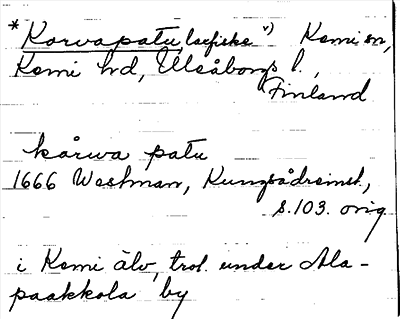 *Korvapatu, laxfiske ¹⁾ Kemi sn,
Kemi hd, Uleåborgs l.,
Finland
kårwa patu
1666 Westman, Kungsådreinst.,
s. 103. orig.
i Kemi älv, trol. under Ala-
paakkola by